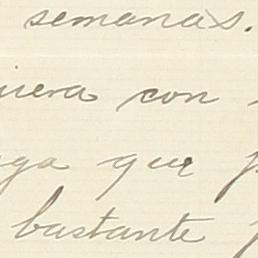 semanas.
uiera con
ga que p
bastante